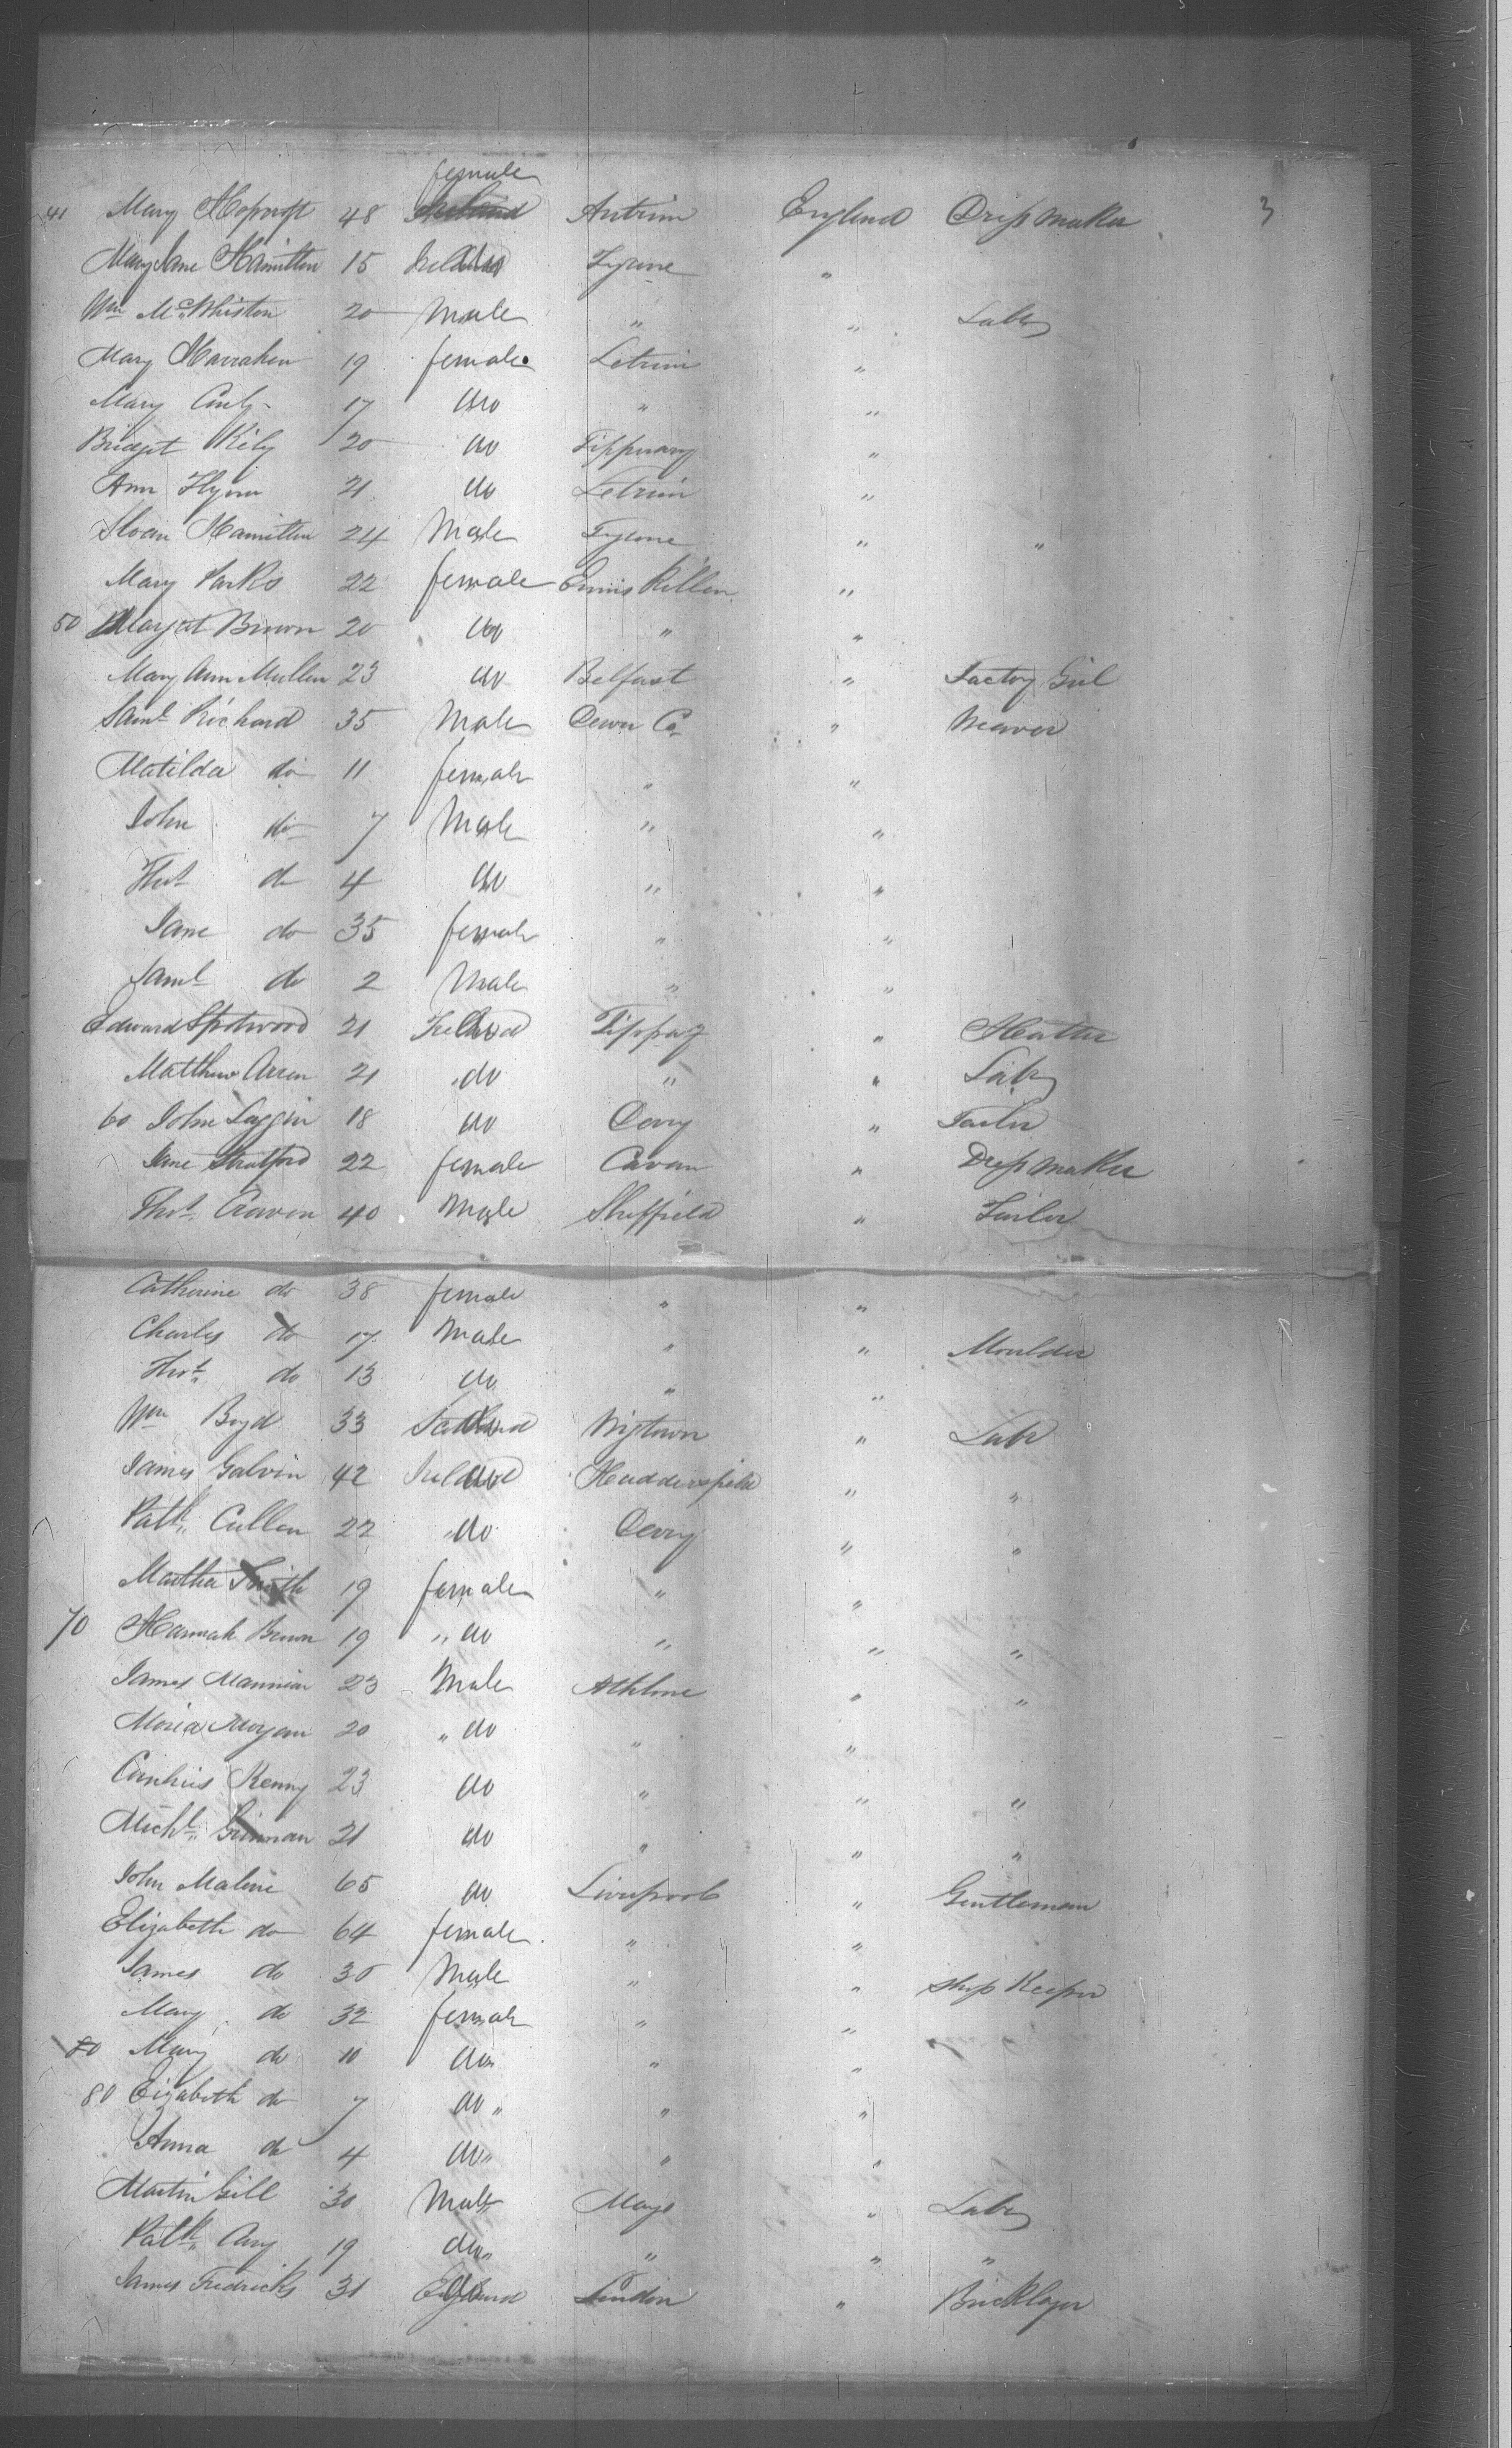 female
41 Mary Hopcroft 48 Ireland Antrim England Dress Maker 3
Mary Jane Hamilton 15 Ireland do Tyrone "
Wm McWhiston 20 Male " " Labr
Mary 19 female Letrim "
Mary 17 do " "
Bridget Kily 20 do Tipperary "
Ann Flynn 21 do Letrim "
Sloan Hamilton 24 Male Tyrone " "
Mary Parks 22 female Ennis Killen "
50 Margat Brown 20 do " "
Mary Ann Mullen 23 do Belfast " Factory Girl
Saml Richard 35 Male Down Co " Weaver
Matilda do 11 female " "
John do 7 Male " "
Thos do 4 do " "
Jane do 35 female " "
Saml do 2 Male " "
Edward Spotwood 21 Ireland do Tippay " Hatter
Matthew 21 " do " " Labr
60 John Laggin 18 do Derry " Tailor
Jane Stratford 22 female Cavan " Dress Maker
Thos Craven 40 Male Sheffield " Tailor
Catherine do 38 female " "
Charles do 17 Male " " Moulder
Thos do 13 do " "
Wm Boyd 33 Scotland do Wigtown " Labr
James Galvin 42 Ireland do Huddersfield " "
Patk Cullen 22 " do Derry " "
Martha Smith 19 female " "
70 Hannah Brown 19 " do " " "
James Mannion 23 Male Athlone " "
Moria Morgan 20 " do " "
Kenny 23 do " " "
Michl 21 do " " "
John Malone 65 do Liverpool " Gentleman
Elizabeth do 64 female " "
James do 30 Male " " Shop Keeper
Mary do 32 female " "
80 Mary do 10 do " "
80 Elizabeth do 7 do " " "
Anna do 4 do " " "
Martin Gill 30 Male Mayo " Labr
Patk 19 do " " " "
James Fredricks 31 England do London " Bricklayer